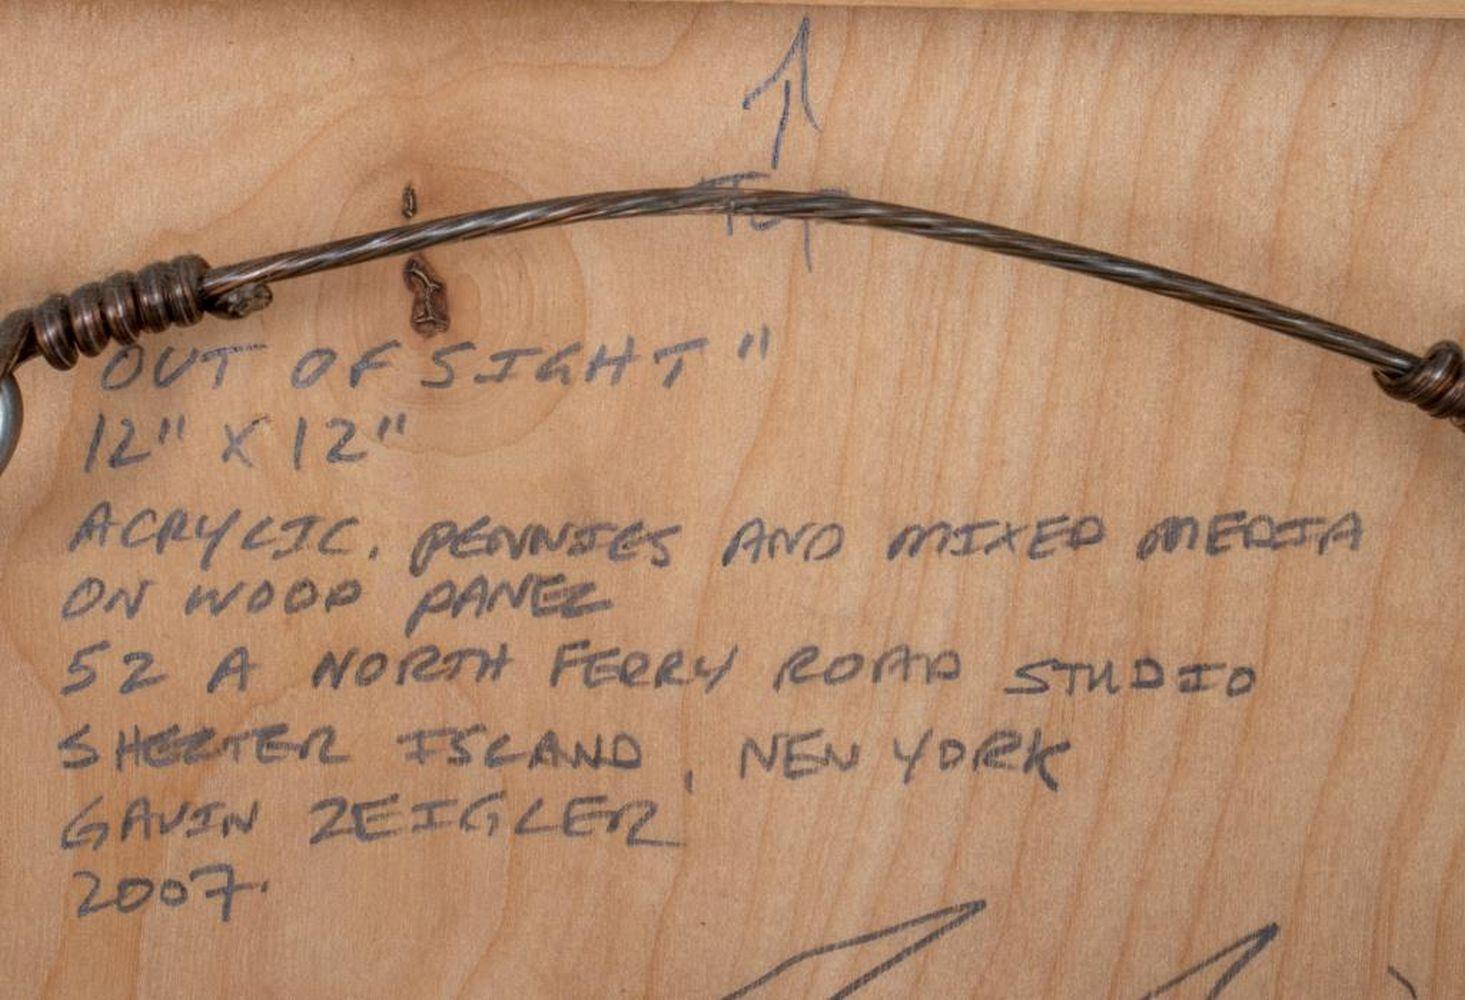 Top
OUT OF SIGHT"
12" X 12"
ACRYLIC, PENNIES AND MIXED MEDIA
ON WOOD PANEL
52 A NORTH FERRY ROAD STUDIO
SHELTER ISLAND, NEW YORK
GAVIN ZEIGLER
2007.